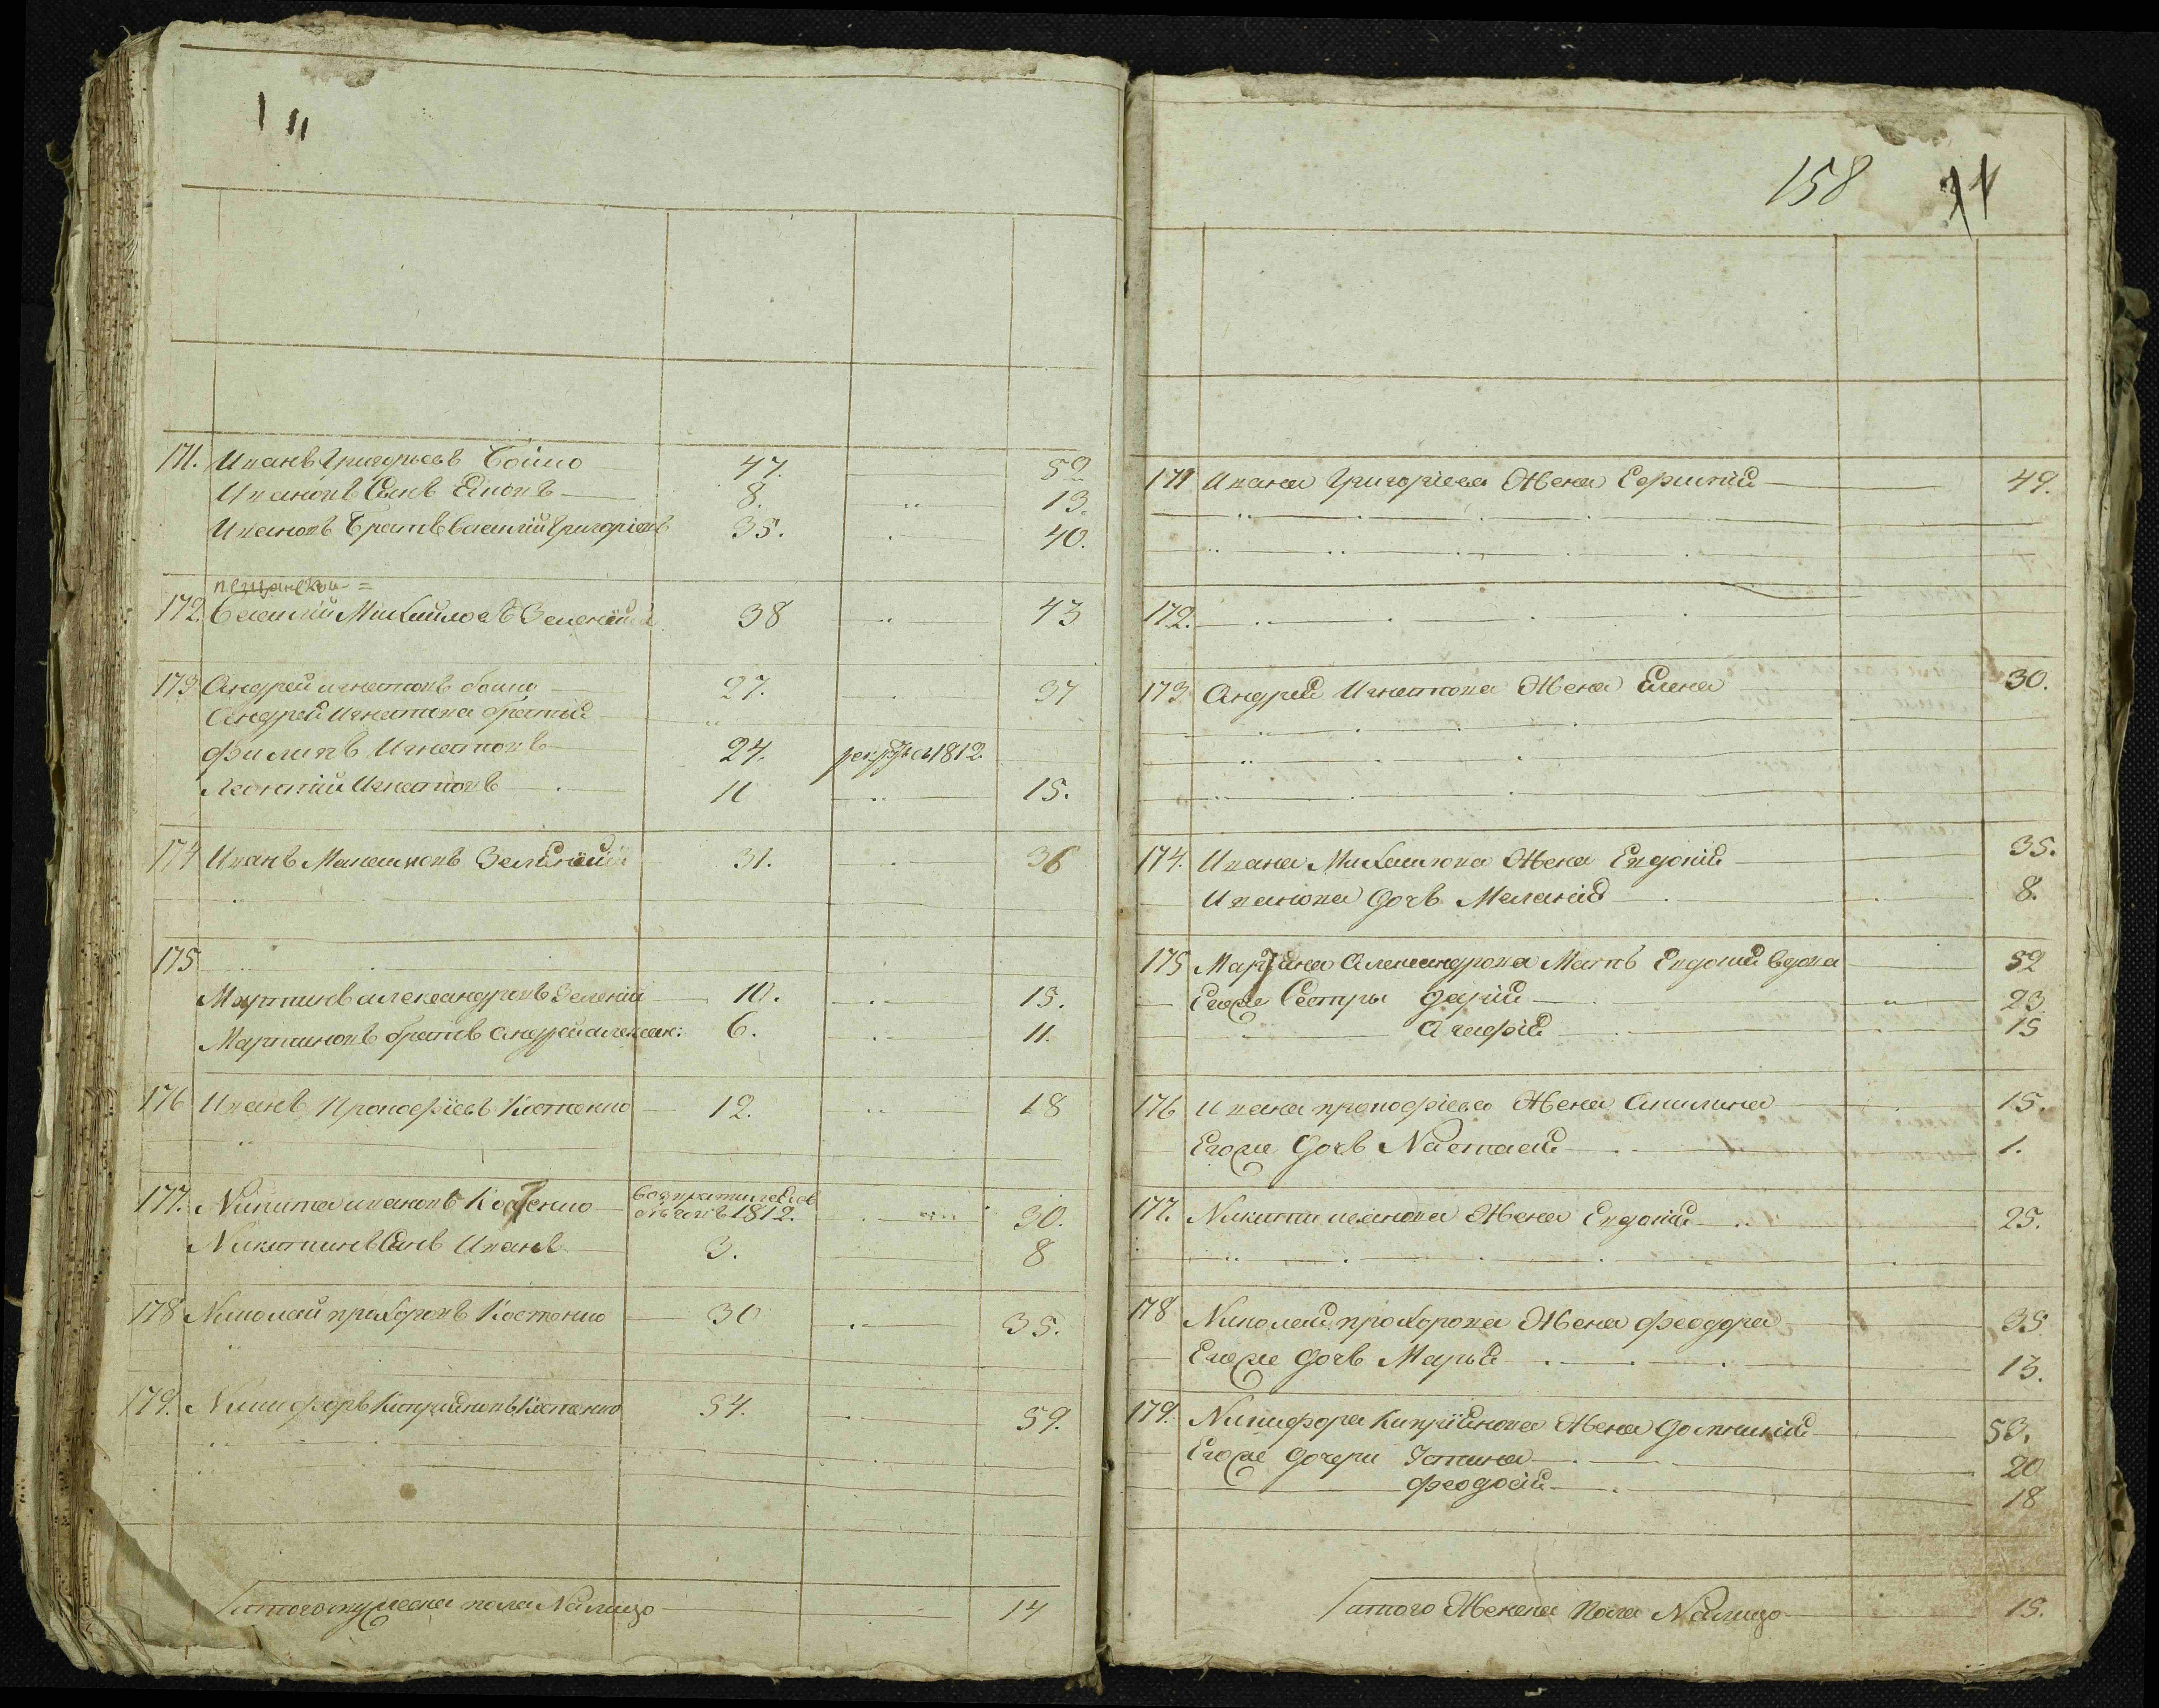 158
171. Иванъ Григорьевъ Бойко 47. 52
Ивановъ Сынъ 8. 13.
Ивановъ Братъ Василий Григоріевъ 35. 40.
172. Василий Михайловъ Зеленский 38 43
173 Андрей Игнатовъ бойко 27. 37
Андрей Игнатова братья
Филипъ Игнатовъ 24. 1812.
Леонтий Игнатовъ 11 15.
174 Иванъ 31. 36
175
Мартинъ александровъ 10. 15.
Мартиновъ братъ андрей алексан: 6. 11.
176 Иванъ Прокофіевъ Костенко 12. 18
177. Никита ивановъ Костенко 1812. 30.
Никитинъ Сынъ Иванъ 3. 8
178 Николай прохоровъ Костенко 30 35.
179. Никифоръ Киприяновъ Костенко 54. 59.
итого мужеска пола Налицо 14
171 Ивана Григоріева Жена Ефимия 49.
172.
173 Андрея Игнатова Жена Елена 30.
174. Ивана Михайлова Жена Евдокия 35.
Иванова Дочь Маланія 8.
175 Мартина Александрова Мать Евдокия вдова 52
Егоже Сестры Дария 23
Агафия 15
176 Ивана прокофіева Жена Акилина 15.
Егоже Дочь Настасия 1.
177. Никиты иванова Жена Евдокия 25.
178 Николая прохорова Жена Феодора 35
Егоже Дочь Марья 13.
179. Никифора Киприянова Жена Домникия 53.
Егоже Дочери Устина 20
Феодосия 18
итого Женска Пола Налицо 15.